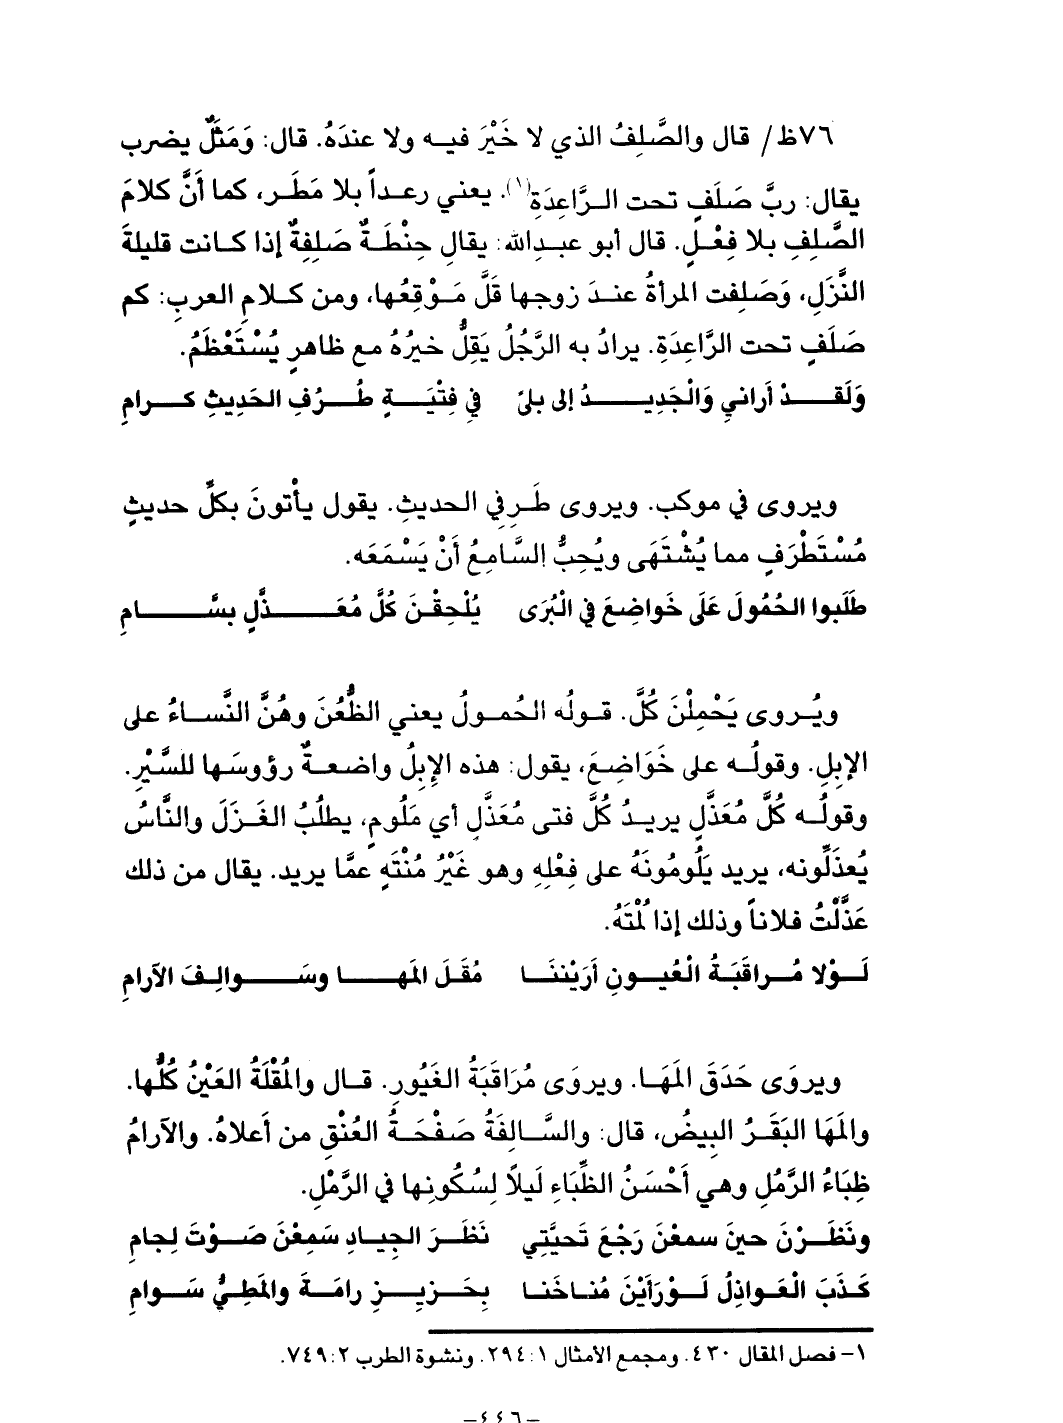 ٧٦ظ/ قال والصَّلِفُ الذي لا خَيْرَ فيه ولا عندَهُ. قال: وَمَثَلٌ يضرب
يقال: ربَّ صَلَفٍ تحت الرَّاعِدَةِ(١). يعني رعداً بلا مَطَر، كما أنَّ كلامَ
الصَّلِفِ بلا فِعْلٍ. قال أبو عبدالله: يقال حِنْطَةٌ صَلِفِةٌ إذا كانت قليلةَ
النَّزَلِ، وَصَلِفت المرأةُ عندَ زوجها قَلَّ مَوْقِعُها، ومن كلامِ العربِ: كم
صَلَفٍ تحت الرَّاعِدَةِ. يرادُ به الرَّجُلُ يَقِلُّ خيرُهُ مع ظاهرٍ يُسْتَعْظَمُ.
وَلَقَدْ أراني وَالْجَدِيدُ إلى بلىً في فِتْيَةٍ طُرُفِ الحَدِيثِ كرامِ
ويروى في موكب. ويروى طَرِفِي الحديثِ. يقول يأْتونَ بكلِّ حديثٍ
مُسْتَطْرَفٍ مما يُشْتَهَى ويُحِبُّ السَّامِعُ أنْ يَسْمَعَه.
طَلَبوا الحُمُولَ عَلَى خَواضِعَ في الْبُرَى يُلْحِقْنَ كُلَّ مُعَذَّلٍ بسَّامِ
ويُروى يَحْمِلْنَ كُلَّ. قولُه الحُمولُ يعني الظُّعُنَ وهُنَّ النَّساءُ على
الإبلِ. وقولُه على خَوَاضِعَ، يقول: هذه الإِبِلُ واضعةٌ رؤوسَها للسَّيْرِ.
وقولُه كُلَّ مُعَذَّلٍ يريدُ كُلَّ فتى مُعَذَّلٍ أي مَلُومٍ، يطلُبُ الغَزَلَ والنَّاسُ
يُعذَلِّونه، يريد يَلُومُونَهُ على فِعْلِهِ وهو غَيْرُ مُنْتَهٍ عمَّا يريد. يقال من ذلك
عَذَّلْتُ فلاناً وذلك إذا لُمْتَهُ.
لَوْلا مُراقَبَةُ الْعُيونِ أرَيْنَنَا مُقَلَ المَها وسَوالِفَ الآرامِ
ويروَى حَدَقَ المَهَا. ويروَى مُرَاقَبَةُ الغَيُورِ. قال والمُقْلَةُ العَيْنُ كُلُّها.
والمَهَا البَقَرُ البِيضُ، قال: والسَّالِفَةُ صَفْحَةُ العُنْقِ من أعلاهُ. والآرامُ
ظِبَاءُ الرَّمُلِ وهي أَحْسَنُ الظِّبَاءِ لَيلاً لِسُكُونِها في الرَّمْلِ.
ونَظَرْنَ حينَ سمعْنَ رَجْعَ تَحيَّتِي نَظَرَ الجِيادِ سَمِعْنَ صَوْتَ لِجامِ
كَذَبَ الْعَواذِلُ لَوْرَأَيْنَ مُناخَنا بِحَزِيزِ رامَةَ والمَطِيُّ سَوامِ
١- فصل المقال ٤٣٠. ومجمع الأمثال ١:٢٩٤. ونشوة الطرب ٢:٧٤٩.
-٤٤٦-